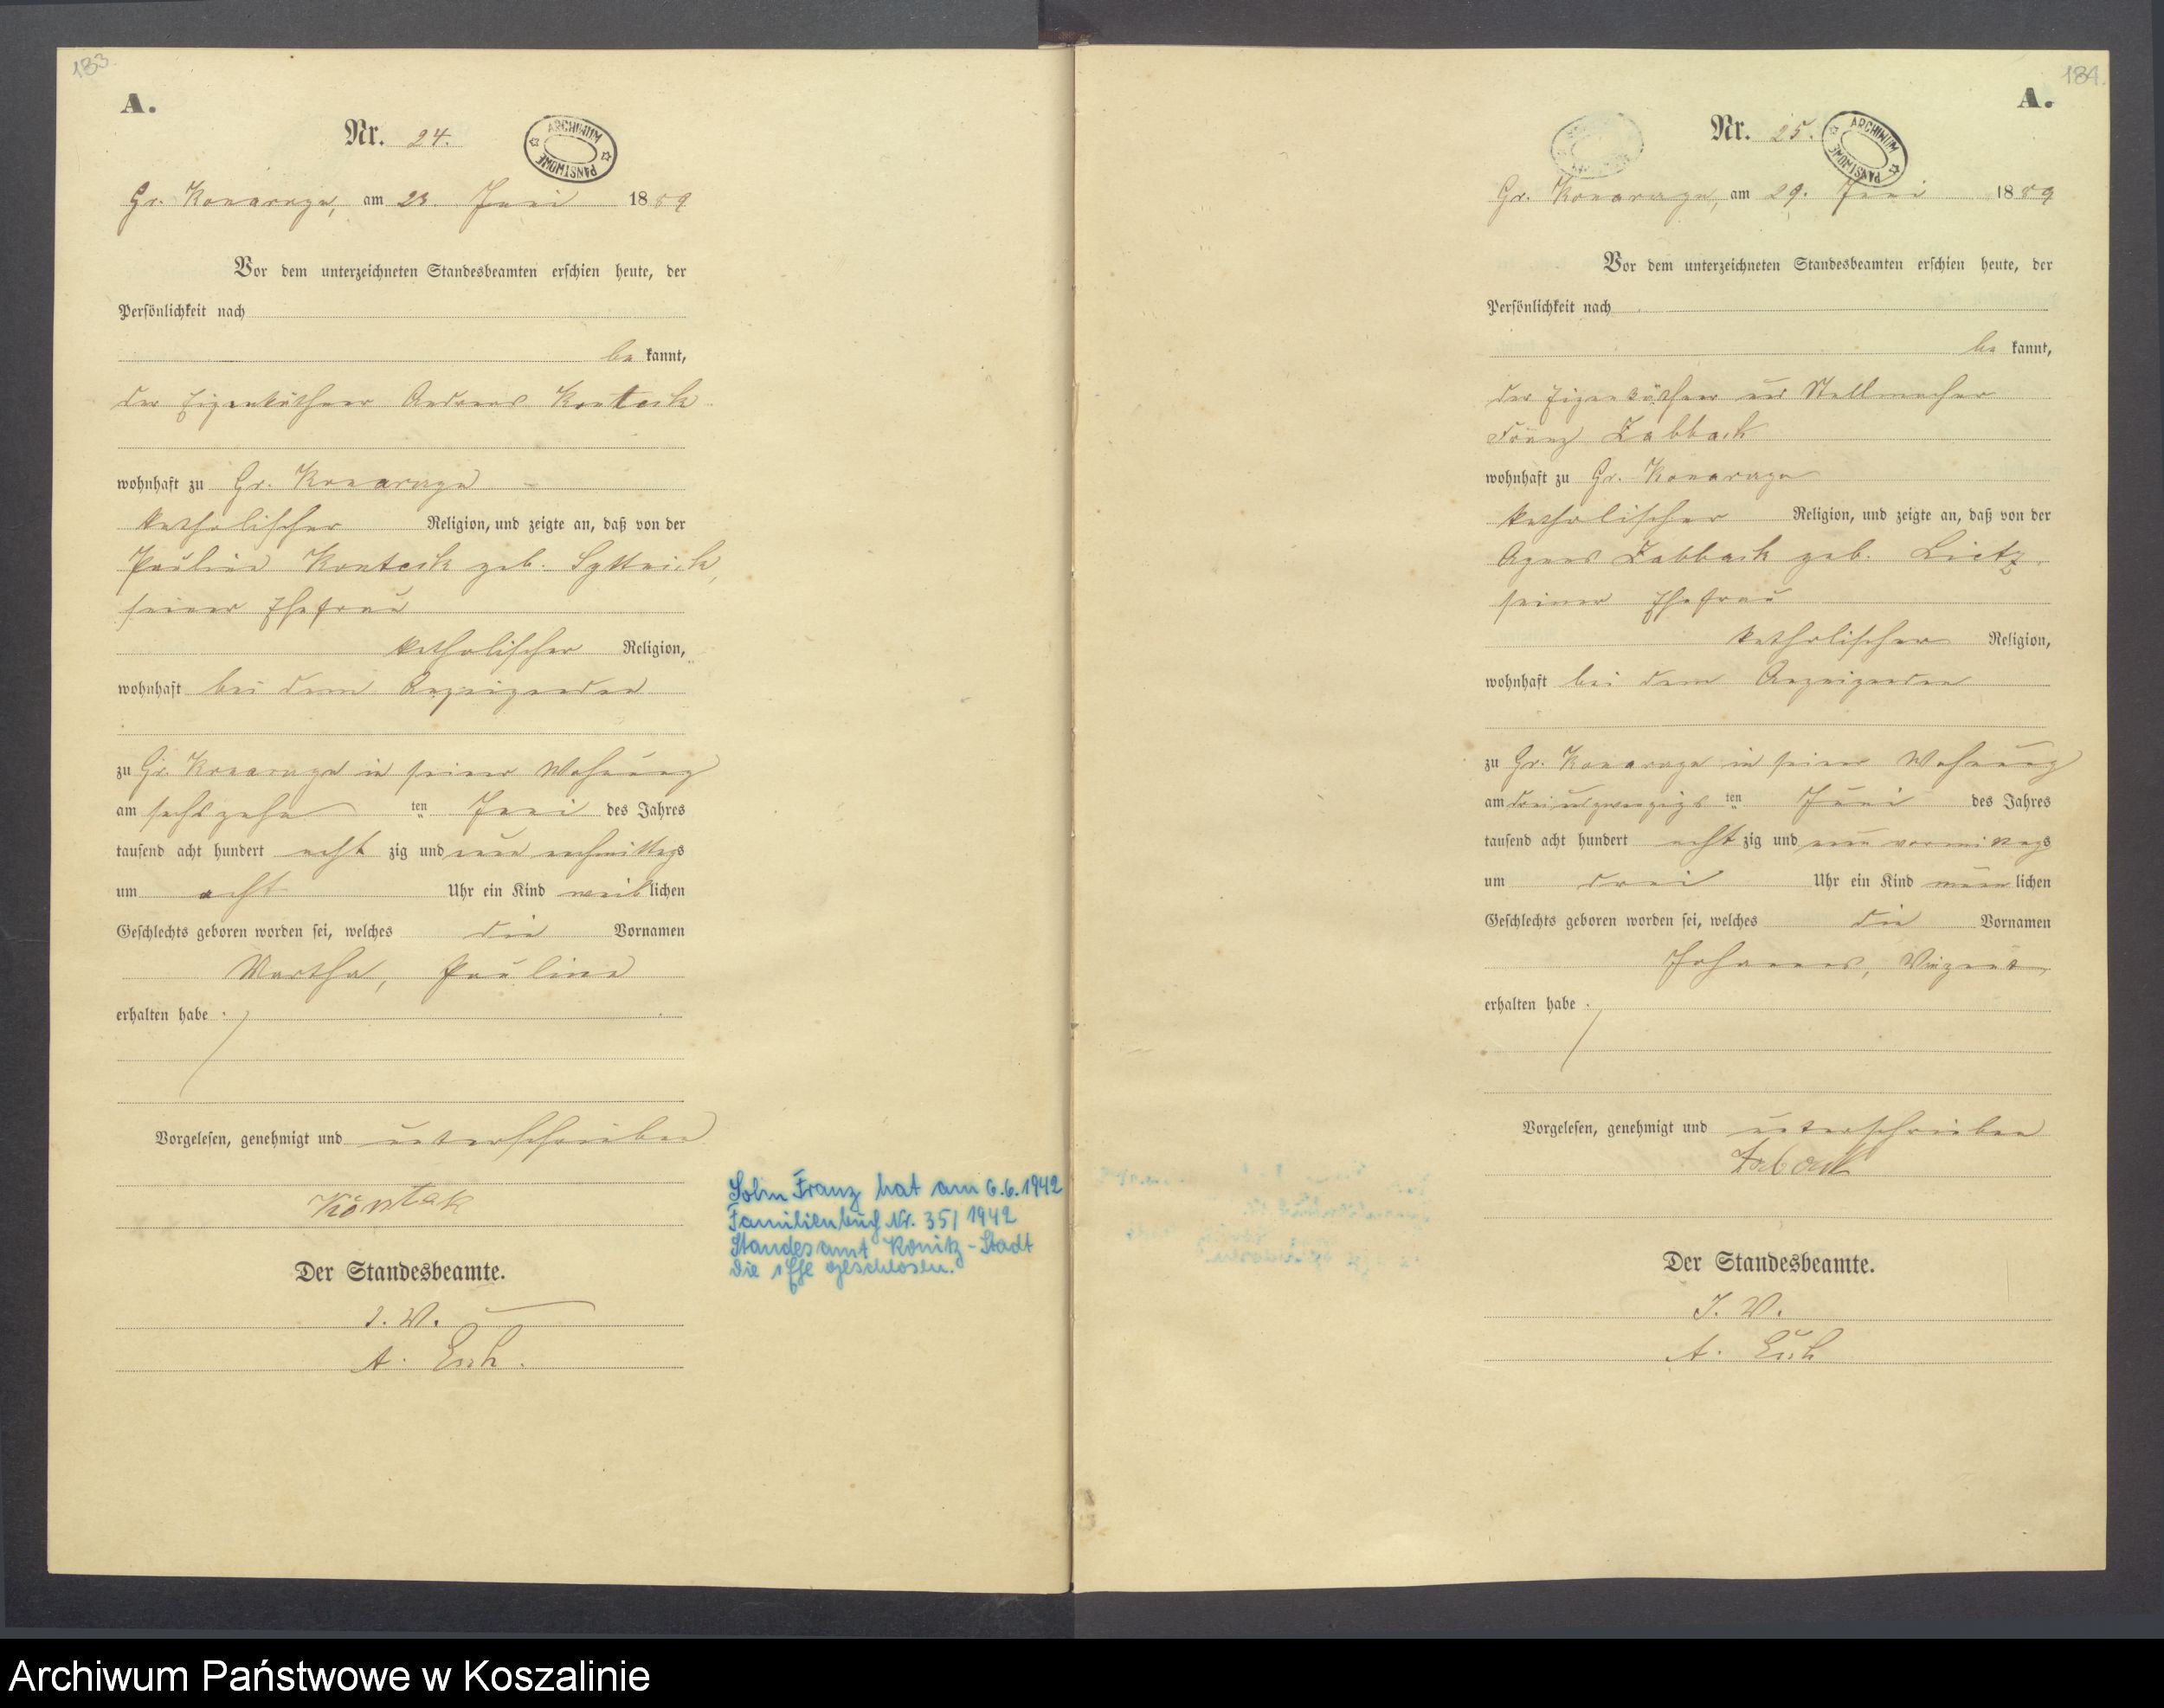 183.
A.
Nr. 24.
ARCHIWUM PAŃSTWOWE
Gr. Konarczyn, am 23. Juni 1889
Vor dem unterzeichneten Standesbeamten erschien heute, der
Persönlichkeit nach
be kannt,
der Eigenkäthner Andreas Konteck
wohnhaft zu Gr. Konarczyn
katholischer Religion, und zeigte an, daß von der
Pauline Konteck geb.
seiner Ehefrau
katholischer Religion,
wohnhaft bei dem Anzeigenden
zu Gr. Konarczyn in seiner Wohnung
am sechszehn ten Juni des Jahres
tausend acht hundert acht zig und neun nachmittags
um acht Uhr ein Kind weiblichen
Geschlechts geboren worden sei, welches die Vornamen
Martha, Pauline
erhalten habe
Vorgelesen, genehmigt und unterschrieben
Der Standesbeamte.
J. V.
Sohn Franz hat am 6.6.1942
Familienbuch Nr. 35/1942
Standesamt Konitz-Stadt
die 1 Ehe geschlossen.
184.
A.
Nr. 25.
ARCHIWUM PAŃSTWOWE
Gr. Konarczyn, am 29. Juni 1889
Vor dem unterzeichneten Standesbeamten erschien heute, der
Persönlichkeit nach
be kannt,
der Eigenkäthner und Stellmacher
Franz Zabback
wohnhaft zu Gr. Konarczyn
katholischer Religion, und zeigte an, daß von der
Agnes Zabback geb. Lietz,
seiner Ehefrau
katholischer Religion,
wohnhaft bei dem Anzeigenden
zu Gr. Konarczyn in seiner Wohnung
am dreiundzwanzigs ten Juni des Jahres
tausend acht hundert acht zig und neun vormittags
um drei Uhr ein Kind männlichen
Geschlechts geboren worden sei, welches die Vornamen
Johannes, Vinzent
erhalten habe
Vorgelesen, genehmigt und unterschrieben
Der Standesbeamte.
J. V.
Archiwum Państwowe w Koszalinie